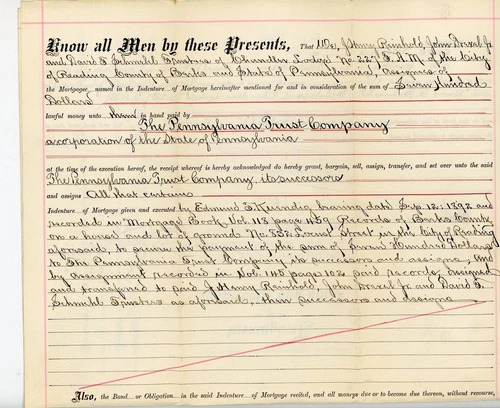 Know all Men by these Presents, That We, J Henry Reinhold, John Drexel Jr
and David S Schmehl Trustees of Chandler Lodge No. 227 F. A. M. of the City
of Reading County of Berks and State of Pennsylvania, Assignees of
the Mortgagee named in the Indenture of Mortgage hereinafter mentioned for and in consideration of the sum of Seven Hundred
Dollars
lawful money unto them in hand paid by
The Pennsylvania Trust Company
a corporation of the State of Pennsylvania
at the time of the execution hereof, the receipt whereof is hereby acknowledged do hereby grant, bargain, sell, assign, transfer, and set over unto the said
The Pennsylvania Trust Company, its successors
and assigns All that certain
Indenture of Mortgage given and executed by Edmund S. bearing date Sep. 12, 1892 and
recorded in Mortgage Book Vol. 113 page 459 Records of Berks County
on a house and lot of ground No. 332 Locust Street in the City of Reading
aforesaid, to secure the payment of the sum of Seven Hundred Dollars
to The Pennsylvania Trust Company its successors and assigns, and
by assignment recorded in Vol. 145 page 102 said records, assigned
and transferred to said J Henry Reinhold, John Drexel Jr. and David S.
Schmehl Trustees as aforesaid, their successors and assigns
Also, the Bond or Obligation in the said Indenture of Mortgage recited, and all moneys due or to become due thereon, without recourse,